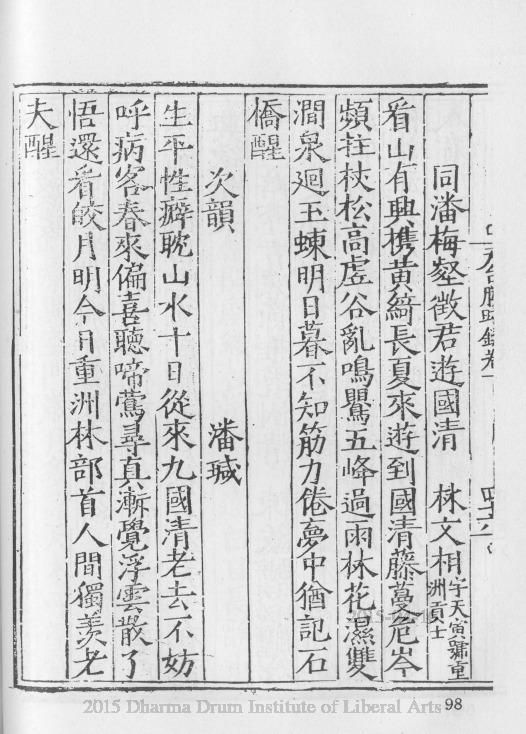 天台勝蹟錄卷一
同潘梅壑徵君遊國清　林文相字天寅號重洲貢士
看山有興携黃綺長夏來遊到國清藤蔓危岑
頻拄杖松高虛谷亂鳴鸎五峰過雨林花濕雙
澗泉迴玉蝀明日暮不知筋力倦夢中猶記石
橋醒
次韻　潘珹
生平性癖耽山水十日從來九國清老去不妨
呼病客春來偏喜聽啼鶯尋真漸覺浮雲散了
悟還看皎月明今日重洲林部首人間獨羨老
夫醒
98
2015 Dharma Drum Institute of Liberal Arts